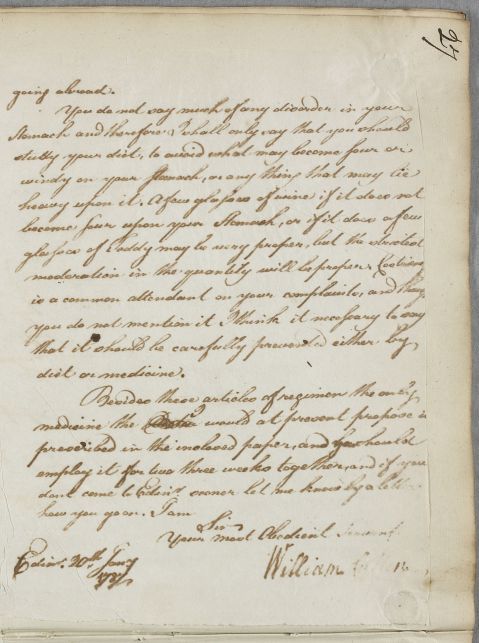 27
going abroad.
You do not say much of any disorder in your
Stomach and therefore I shall only say that you should
study your diet, to avoid what may become sour or
windy on your Stomach, or any thing that may lie
heavy upon it. A few glasses of wine if it does not
become sour upon your Stomach, or if it does a few
glasses of Toddy may be very proper, but the strictest
moderation in the quantity will be proper. Costiveness
is a common attendant on your complaints, and though
you do not mention it I think it necessary to say
that it should be carefully prevented either by
diet or medicine.
Besides these articles of regimen the only
medicine the would at present propose is
prescribed in the inclosed paper, and you should
employ it for two three weeks together, and if you
dont come to Edinr. sooner let me know by a letter
how you go on. I am
Sir
Your most Obedient Servant
Edinr. 20th Jany
William Cullen